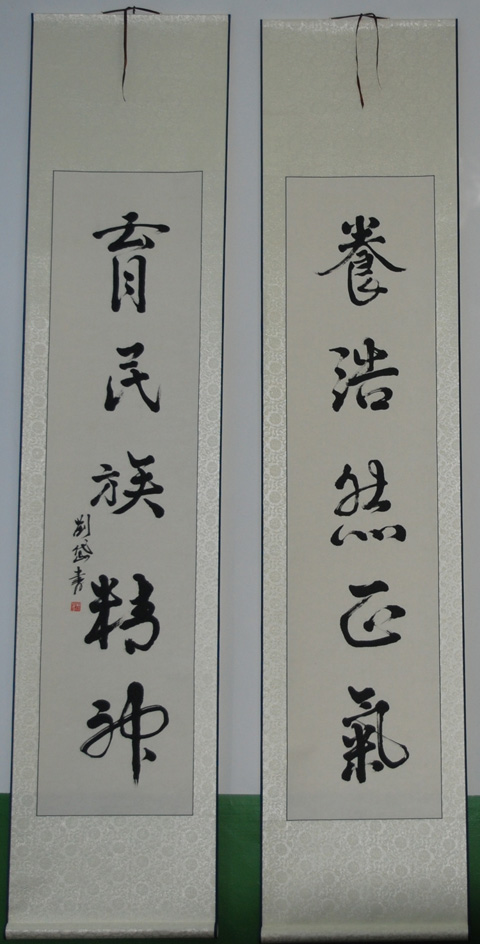 養浩然正氣
育民族精神
劉岱青